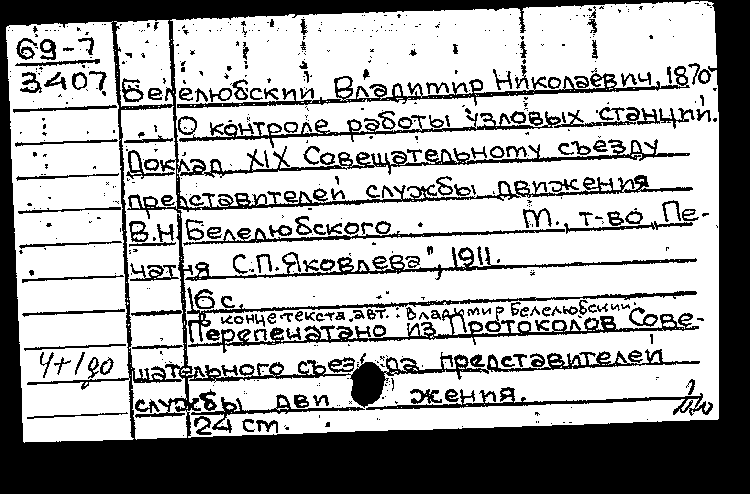 69-7
3407
Белелюбский, Владимир Николаевич, 1870-
О контроле работы узловых станций.
Доклад XIX Совещательному съезду
представителей службы движения
В.Н. Белелюбского. М., т-во „Пе-
чатня С.П. Яковлева", 1911.
16 с.
В конце текста авт.: Владимир Белелюбский.
Перепечатано из Протоколов Сове-
щательного съезда представителей
службы движения.
24 см.